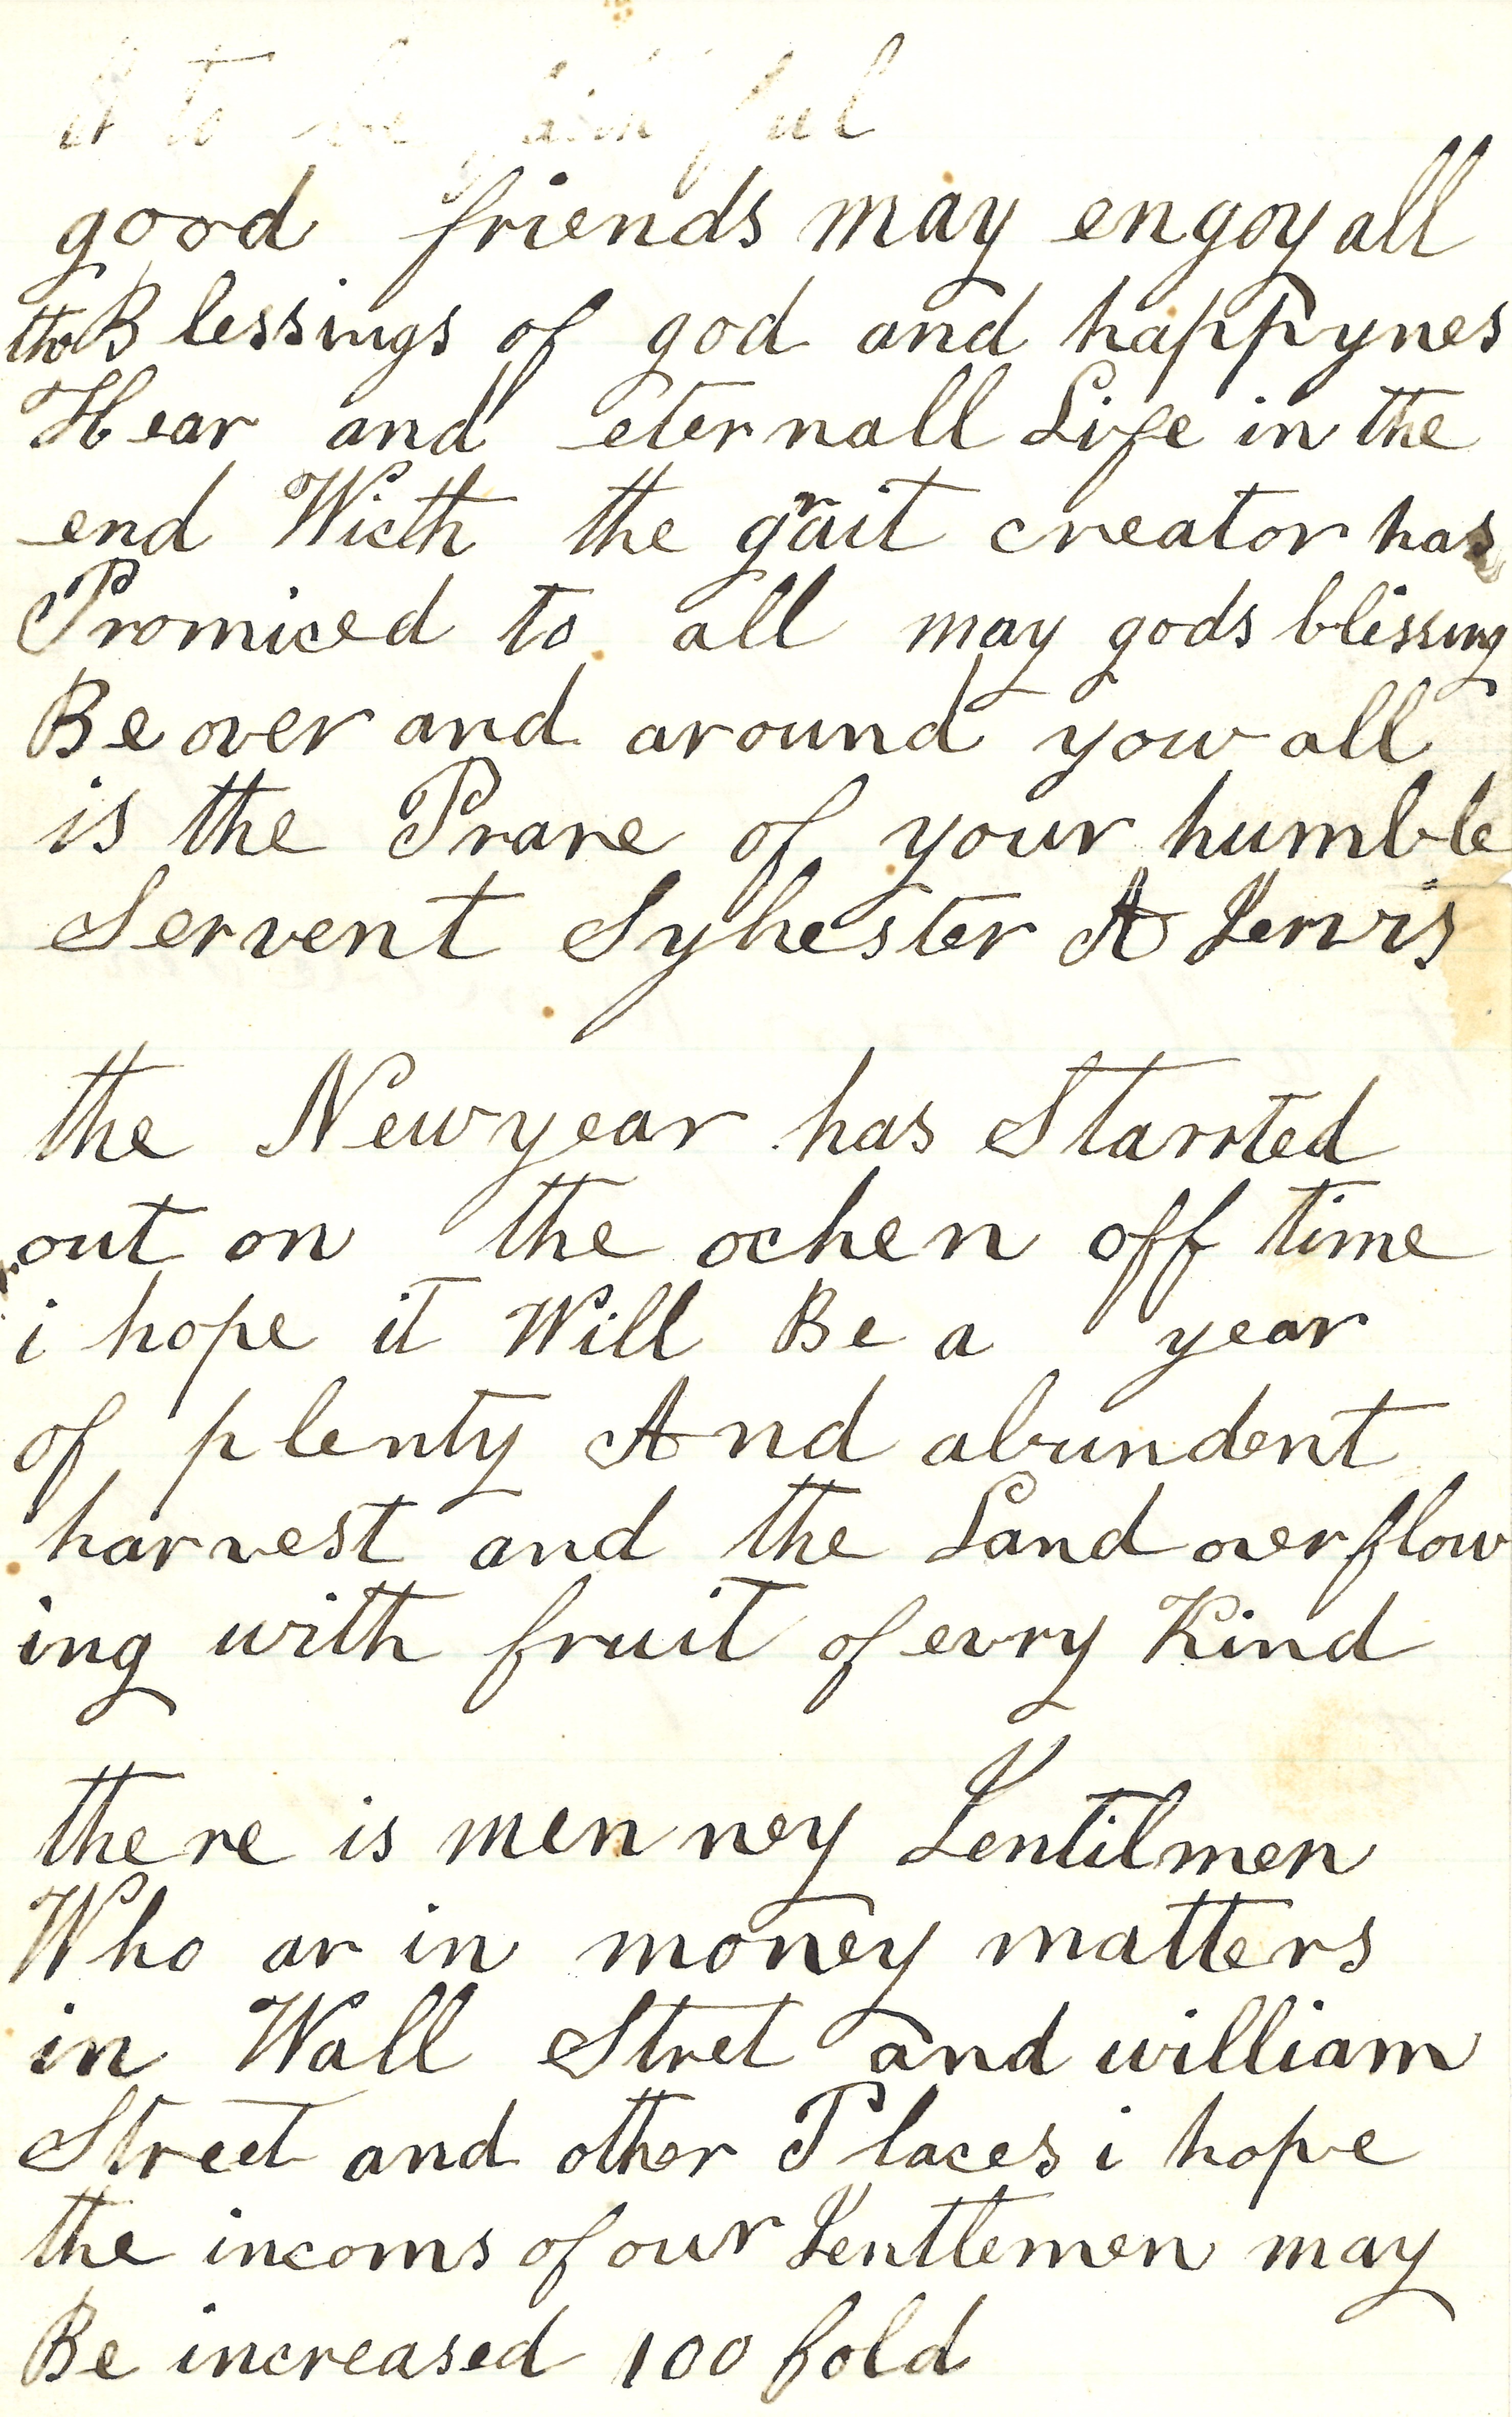 it to be
good friends may engoy all
the Blessings of god and happynes
Hear and eternall Life in the
end Wicth the grait creator has
Promiced to all may gods blissing
Be over and around yow all
is the Prare of your humble
Servent Sylvester A Lewis
the Newyear has Starrted
out on the ochen off time
i hope it Will Be a year
of plenty And abundent
harvest and the Land overflow
ing with fruit of evry Kind
there is menney Gentilmen
Who ar in money matters
in Wall Stret and william
Street and other Places i hope
the incoms of our Gentlemen may
Be increased 100 fold